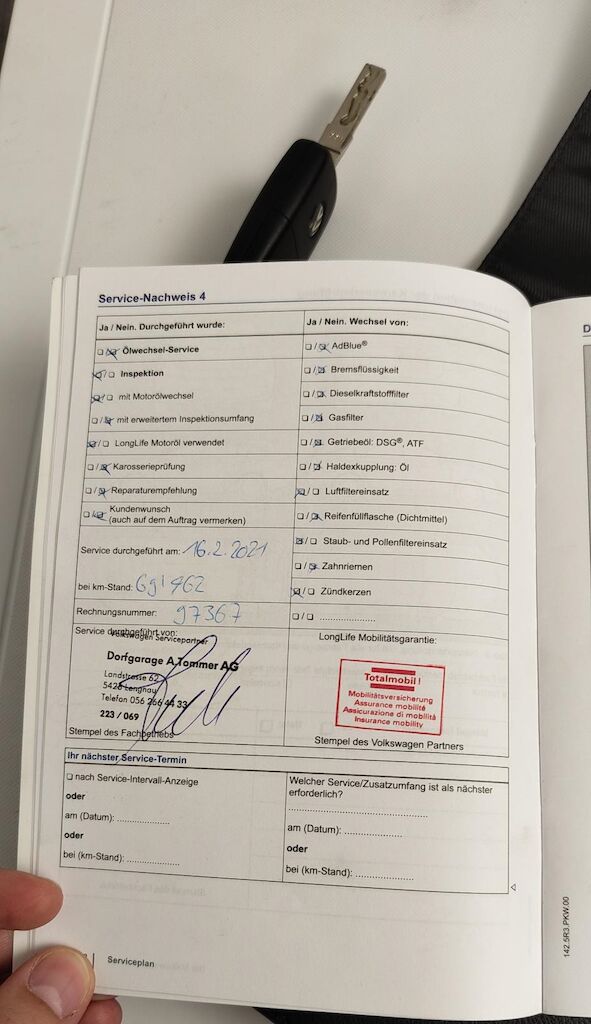 Service-Nachweis 4
Ja / Nein. Durchgeführt wurde:
☐/☒ Ölwechsel-Service
☒/☐ Inspektion
☒/☐ mit Motorölwechsel
☐/☒ mit erweitertem Inspektionsumfang
☒/☐ LongLife Motoröl verwendet
☐/☒ Karosserieprüfung
☐/☒ Reparaturempfehlung
☐/☒ Kundenwunsch
(auch auf dem Auftrag vermerken)
Service durchgeführt am: 16.2.2021
bei km-Stand: 69'462
Rechnungsnummer: 97367
Service durchgeführt von:
Volkswagen Servicepartner
Dorfgarage A. Tommer AG
Landstrasse 62
5426 Lengnau
Telefon 056 266 44 33
223 / 069
Stempel des Fachbetriebs
Ja / Nein. Wechsel von:
☐/☒ AdBlue®
☐/☒ Bremsflüssigkeit
☐/☒ Dieselkraftstofffilter
☐/☒ Gasfilter
☐/☒ Getriebeöl: DSG®, ATF
☐/☒ Haldexkupplung: Öl
☒/☐ Luftfiltereinsatz
☐/☒ Reifenfüllflasche (Dichtmittel)
☒/☐ Staub- und Pollenfiltereinsatz
☐/☒ Zahnriemen
☒/☐ Zündkerzen
☐/☐ ......................
LongLife Mobilitätsgarantie:
Totalmobil!
Mobilitätsversicherung
Assurance mobilité
Assicurazione di mobilità
Insurance mobility
Stempel des Volkswagen Partners
Ihr nächster Service-Termin
☐ nach Service-Intervall-Anzeige
oder
am (Datum): .....................
oder
bei (km-Stand): .....................
Welcher Service/Zusatzumfang ist als nächster
erforderlich?
..........................................
am (Datum): .....................
oder
bei (km-Stand): .....................
Serviceplan
142.5R3.PKW.00
D